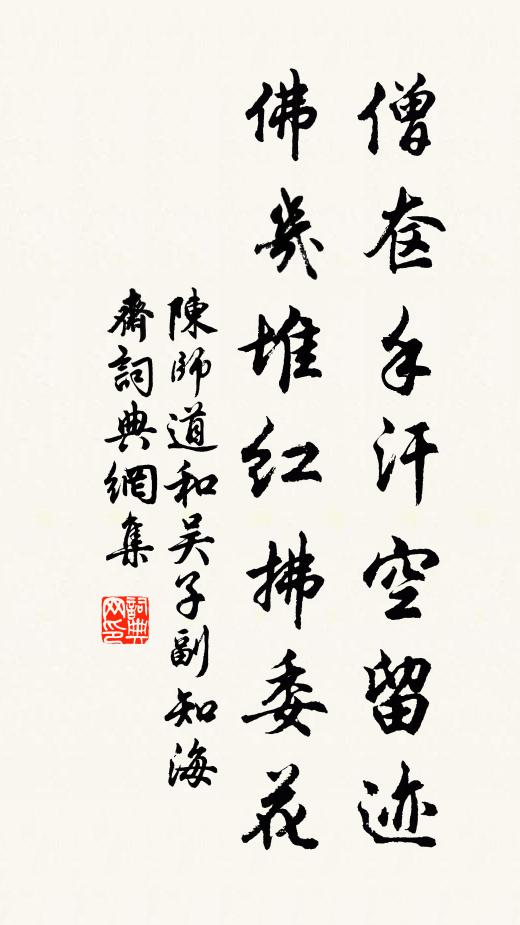 僧奁手汗空留迹
佛几堆红拂委花
陳師道和吴子副知海
齋詞典網集
詞典网印